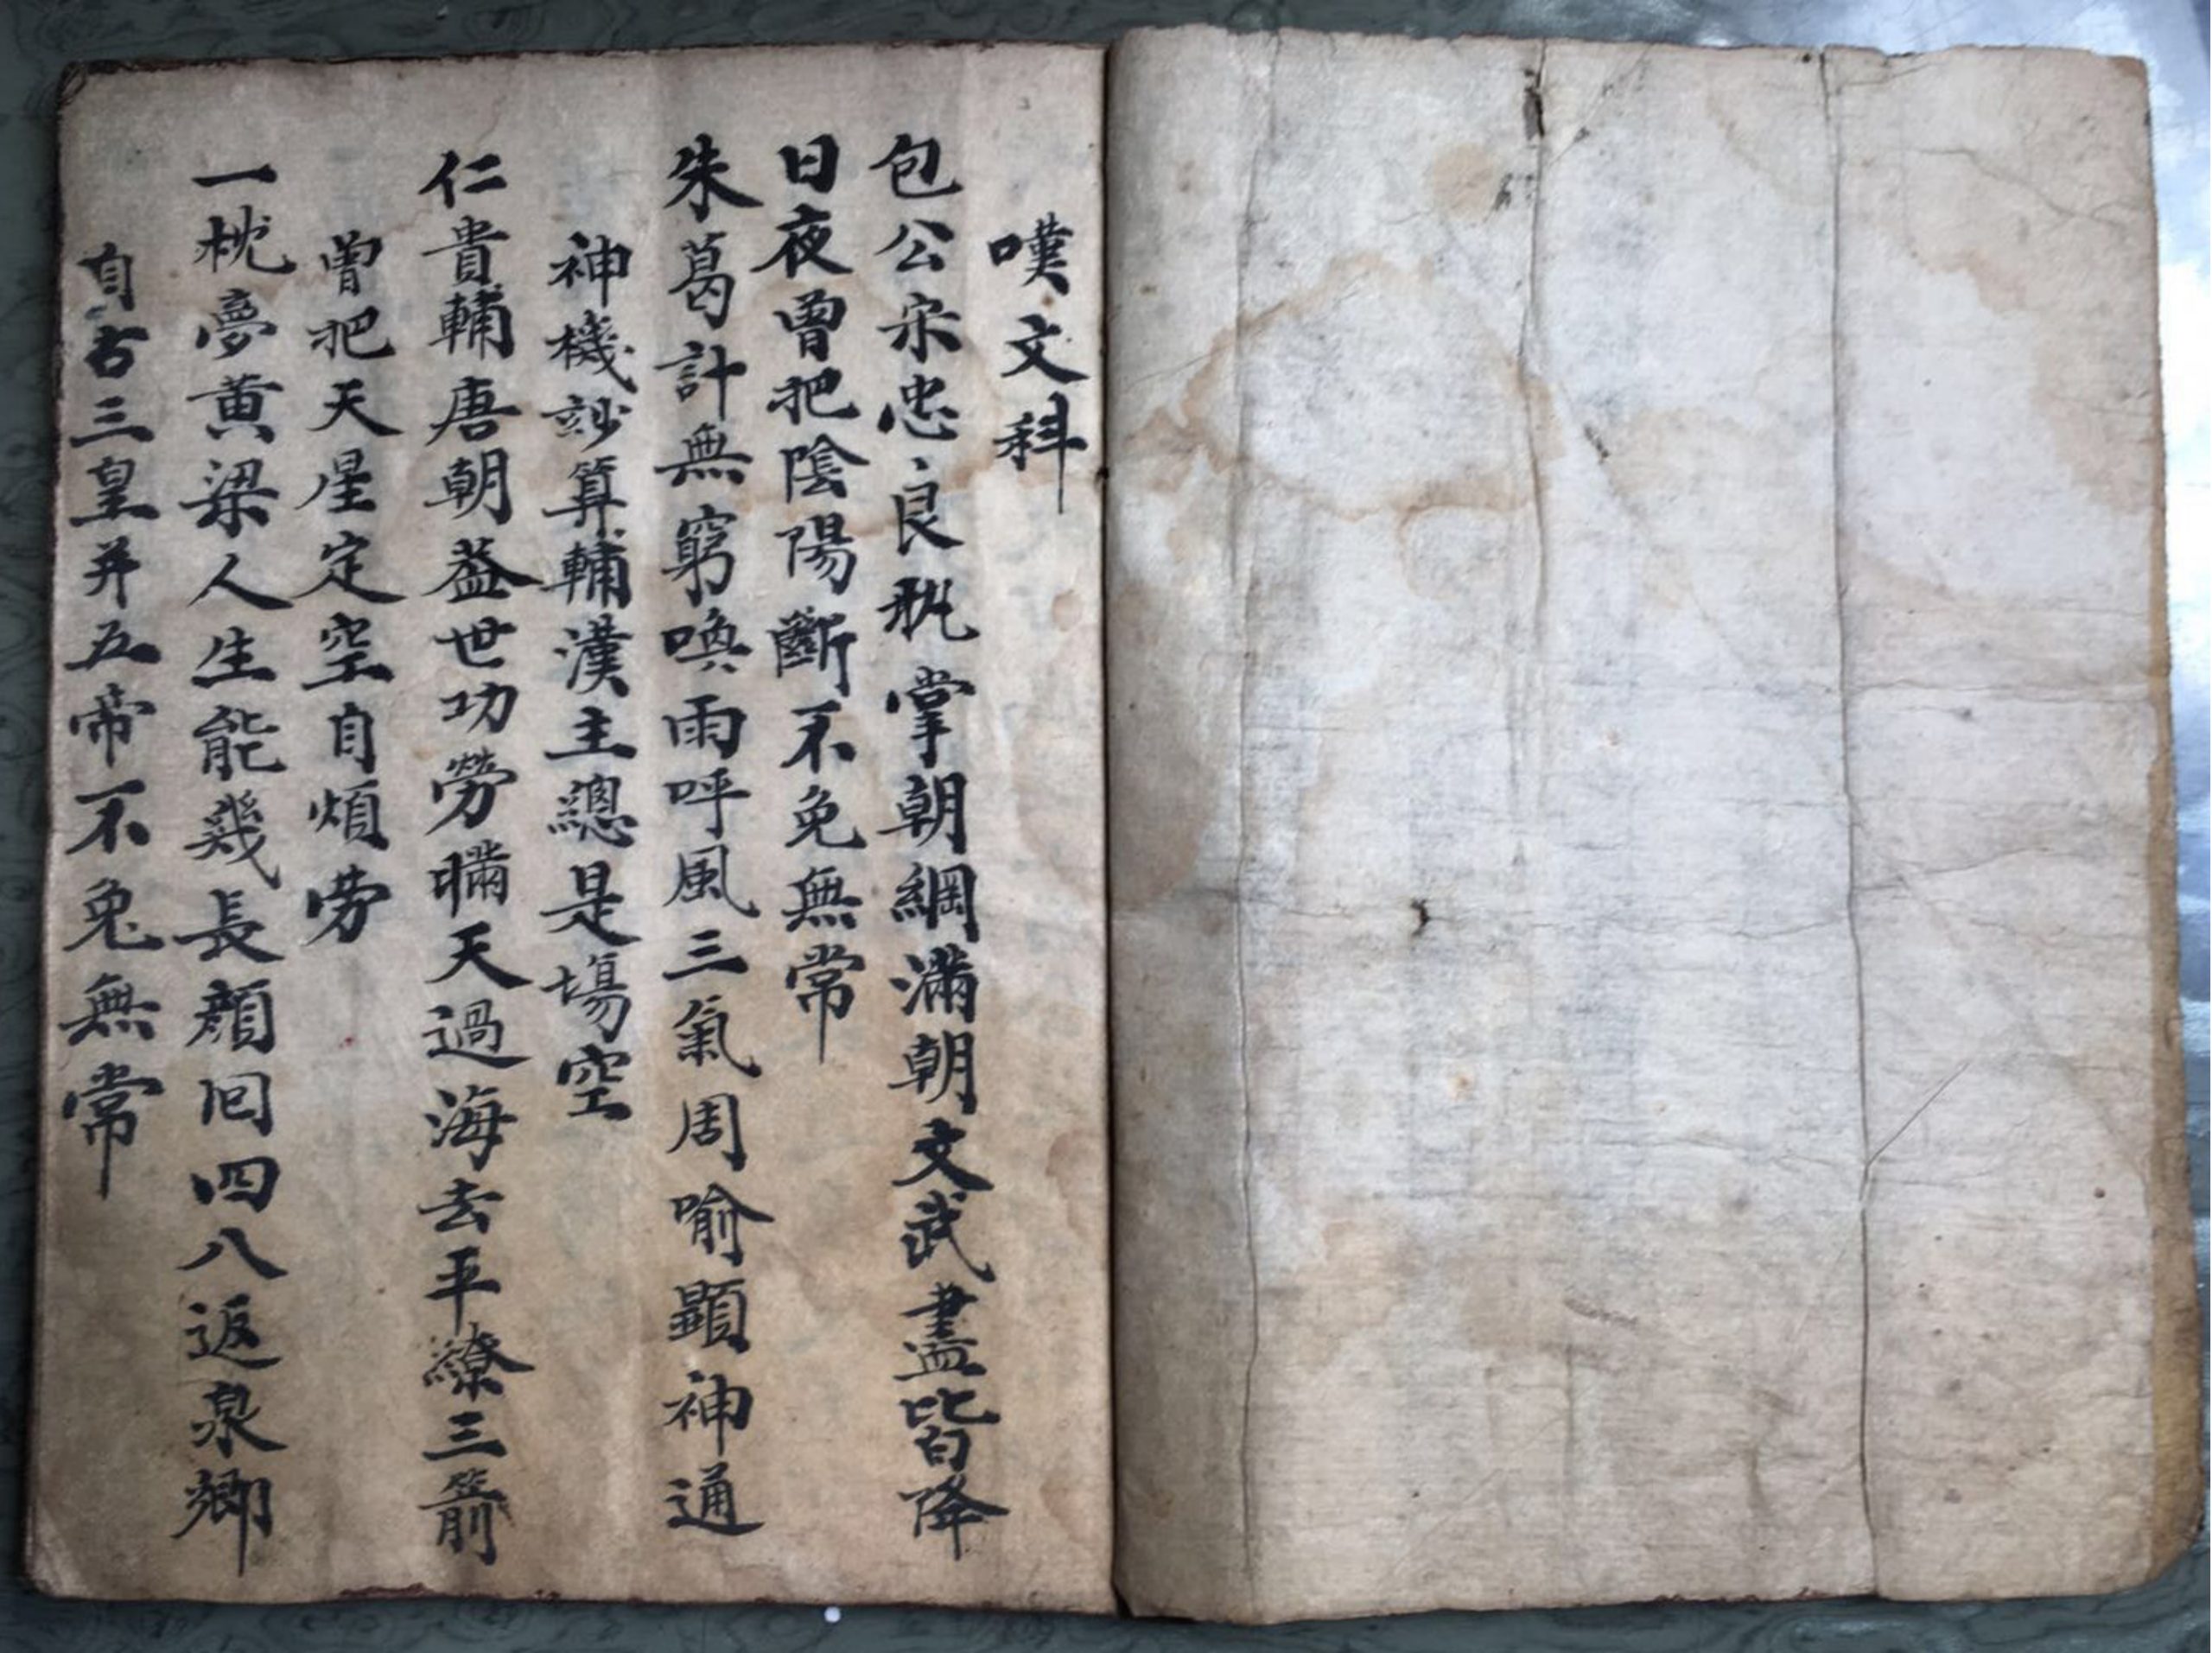 嘆文科
包公宋忠良執掌朝綱滿朝文武盡皆降
日夜曾把陰陽斷不免無常
朱葛計無窮喚雨呼風三氣周喻顯神通
神機妙算輔漢主總是場空
仁貴輔唐朝蓋世功勞瞞天過海去平繚三箭
曾把天星定空自煩劳
一枕夢黄梁人生能幾長顏回四八返泉鄉
自古三皇并五帝不免無常